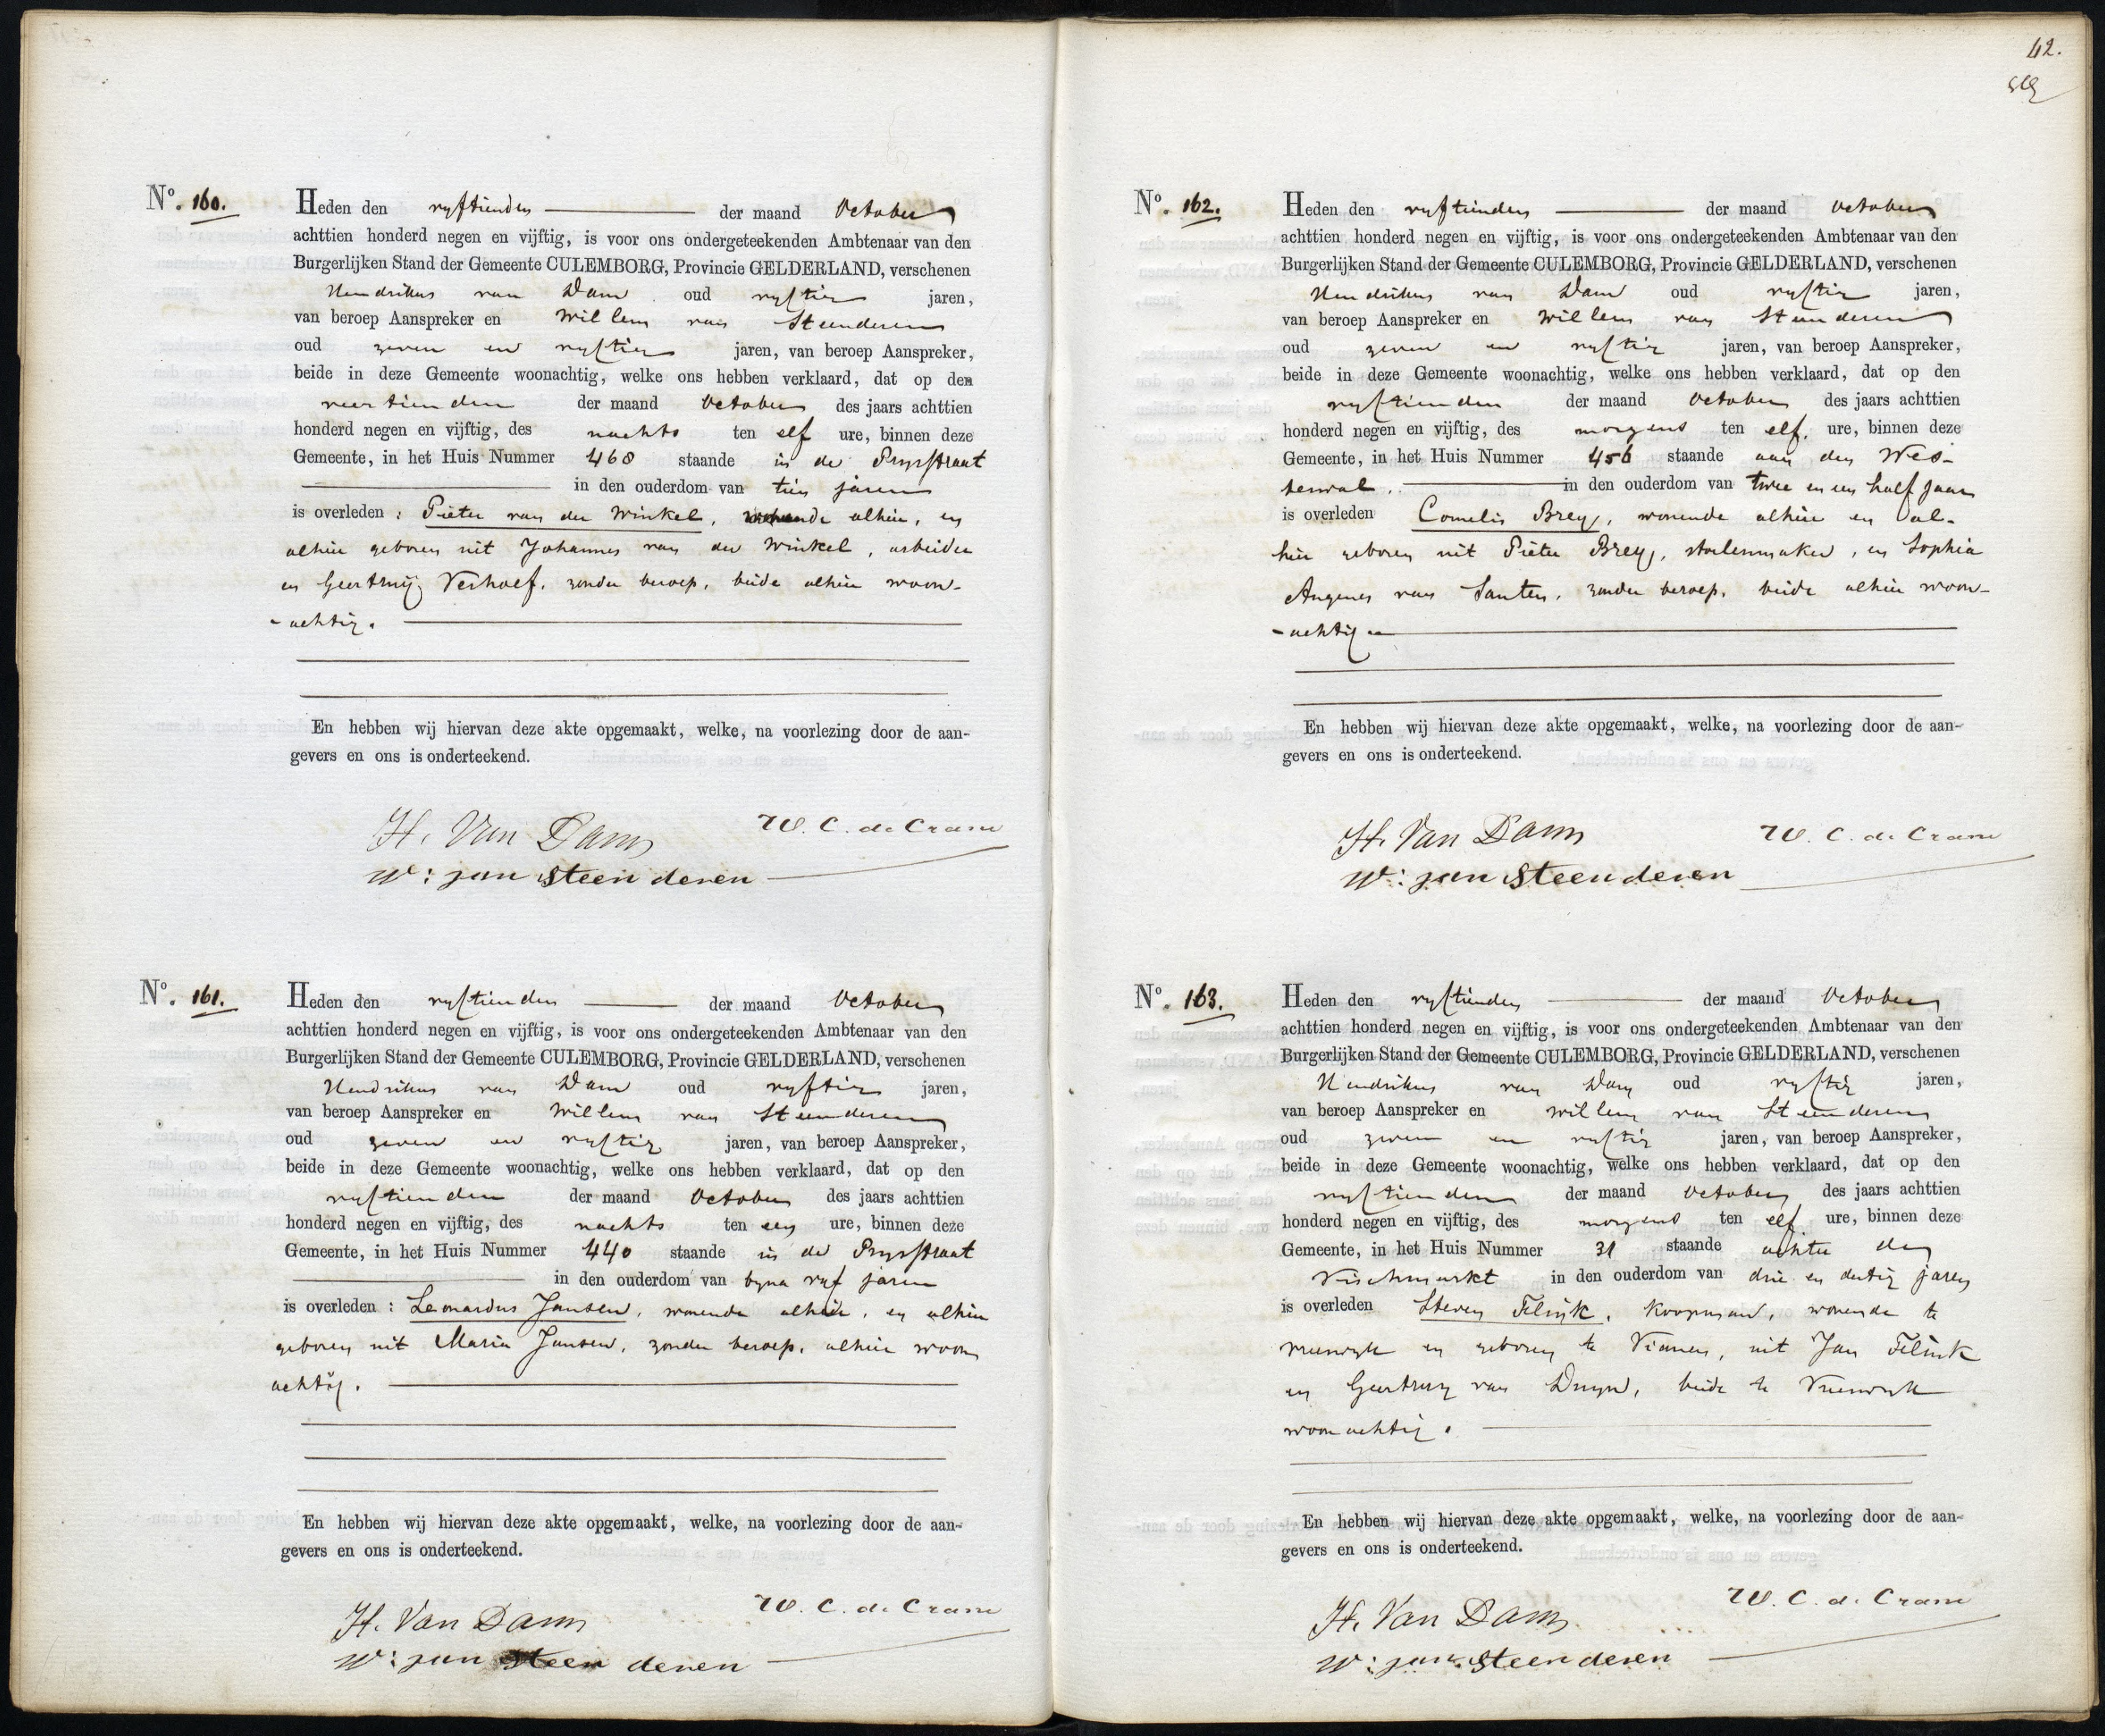 No. 160.
Heden den vyftienden der maand October
achttien honderd negen en vijftig, is voor ons ondergeteekenden Ambtenaar van den
Burgerlijken Stand der Gemeente CULEMBORG, Provincie GELDERLAND, verschenen
Hendrikus van Dam oud vyftig jaren,
van beroep Aanspreker en Willem van Steenderen
oud zeven en vyftig jaren, van beroep Aanspreker,
beide in deze Gemeente woonachtig, welke ons hebben verklaard, dat op den
veertienden der maand October des jaars achttien
honderd negen en vijftig, des nachts ten elf ure, binnen deze
Gemeente, in het Huis Nummer 468 staande in de Prysstraat
in den ouderdom van tien jaren
is overleden : Pieter van der Winkel, wonende alhier, en
alhier geboren uit Johannes van der Winkel, arbeider
en Geertruij Verhoef, zonder beroep, beide alhier woon-
-achtig.
En hebben wij hiervan deze akte opgemaakt, welke, na voorlezing door de aan-
gevers en ons is onderteekend.
H. Van Dam W. C. de Crane
W: van Steenderen
No. 161.
Heden den vyftienden der maand October
achttien honderd negen en vijftig, is voor ons ondergeteekenden Ambtenaar van den
Burgerlijken Stand der Gemeente CULEMBORG, Provincie GELDERLAND, verschenen
Hendrikus van Dam oud vyftig jaren,
van beroep Aanspreker en Willem van Steenderen
oud zeven en vyftig jaren, van beroep Aanspreker,
beide in deze Gemeente woonachtig, welke ons hebben verklaard, dat op den
vyftienden der maand October des jaars achttien
honderd negen en vijftig, des nachts ten een ure, binnen deze
Gemeente, in het Huis Nummer 440 staande in de Prysstraat
in den ouderdom van byna vyf jaren
is overleden : Leonardus Jansen, wonende alhier, en alhier
geboren uit Maria Jansen, zonder beroep, alhier woon
achtig.
En hebben wij hiervan deze akte opgemaakt, welke, na voorlezing door de aan-
gevers en ons is onderteekend.
H. Van Dam W. C. de Crane
W: van Steenderen
42.
No. 162.
Heden den vyftienden der maand October
achttien honderd negen en vijftig, is voor ons ondergeteekenden Ambtenaar van den
Burgerlijken Stand der Gemeente CULEMBORG, Provincie GELDERLAND, verschenen
Hendrikus van Dam oud vyftig jaren,
van beroep Aanspreker en Willem van Steenderen
oud zeven en vyftig jaren, van beroep Aanspreker,
beide in deze Gemeente woonachtig, welke ons hebben verklaard, dat op den
vyftienden der maand October des jaars achttien
honderd negen en vijftig, des morgens ten elf. ure, binnen deze
Gemeente, in het Huis Nummer 456 staande aan den Wes-
terwal. in den ouderdom van twee en een half jaar
is overleden Cornelis Brey, wonende alhier en al-
hier geboren uit Pieter Brey, stoelenmaker, en Sophia
Angenes van Santen, zonder beroep, beide alhier woon-
-achtig
En hebben wij hiervan deze akte opgemaakt, welke, na voorlezing door de aan-
gevers en ons is onderteekend.
H. Van Dam W. C. de Crane
W: van Steenderen
No. 163.
Heden den vyftienden der maand October
achttien honderd negen en vijftig, is voor ons ondergeteekenden Ambtenaar van den
Burgerlijken Stand der Gemeente CULEMBORG, Provincie GELDERLAND, verschenen
Hendrikus van Dam oud vyftig jaren,
van beroep Aanspreker en Willem van Steenderen
oud zeven en vyftig jaren, van beroep Aanspreker,
beide in deze Gemeente woonachtig, welke ons hebben verklaard, dat op den
vyftienden der maand October des jaars achttien
honderd negen en vijftig, des morgens ten elf ure, binnen deze
Gemeente, in het Huis Nummer 31 staande achter den
Vischmarkt in den ouderdom van drie en dertig jaren
is overleden Steven Filink, koopman, wonende te
Vreeswyk en geboren te Vianen, uit Jan Filink
en Geertruy van Duyn, beide te Vreeswyk
woonachtig.
En hebben wij hiervan deze akte opgemaakt, welke, na voorlezing door de aan-
gevers en ons is onderteekend.
H. Van Dam W. C. de Crane
W: van Steenderen